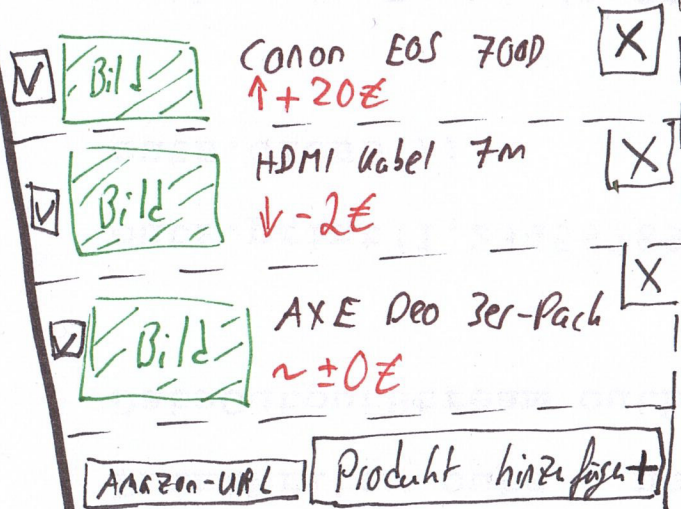 Bild
Canon EOS 700D
X
↑ + 20€
Bild
HDMI Kabel 7m
X
↓ - 2€
Bild
AXE Deo 3er-Pack
X
~ ±0€
Amazon-URL
Produkt hinzufügen +